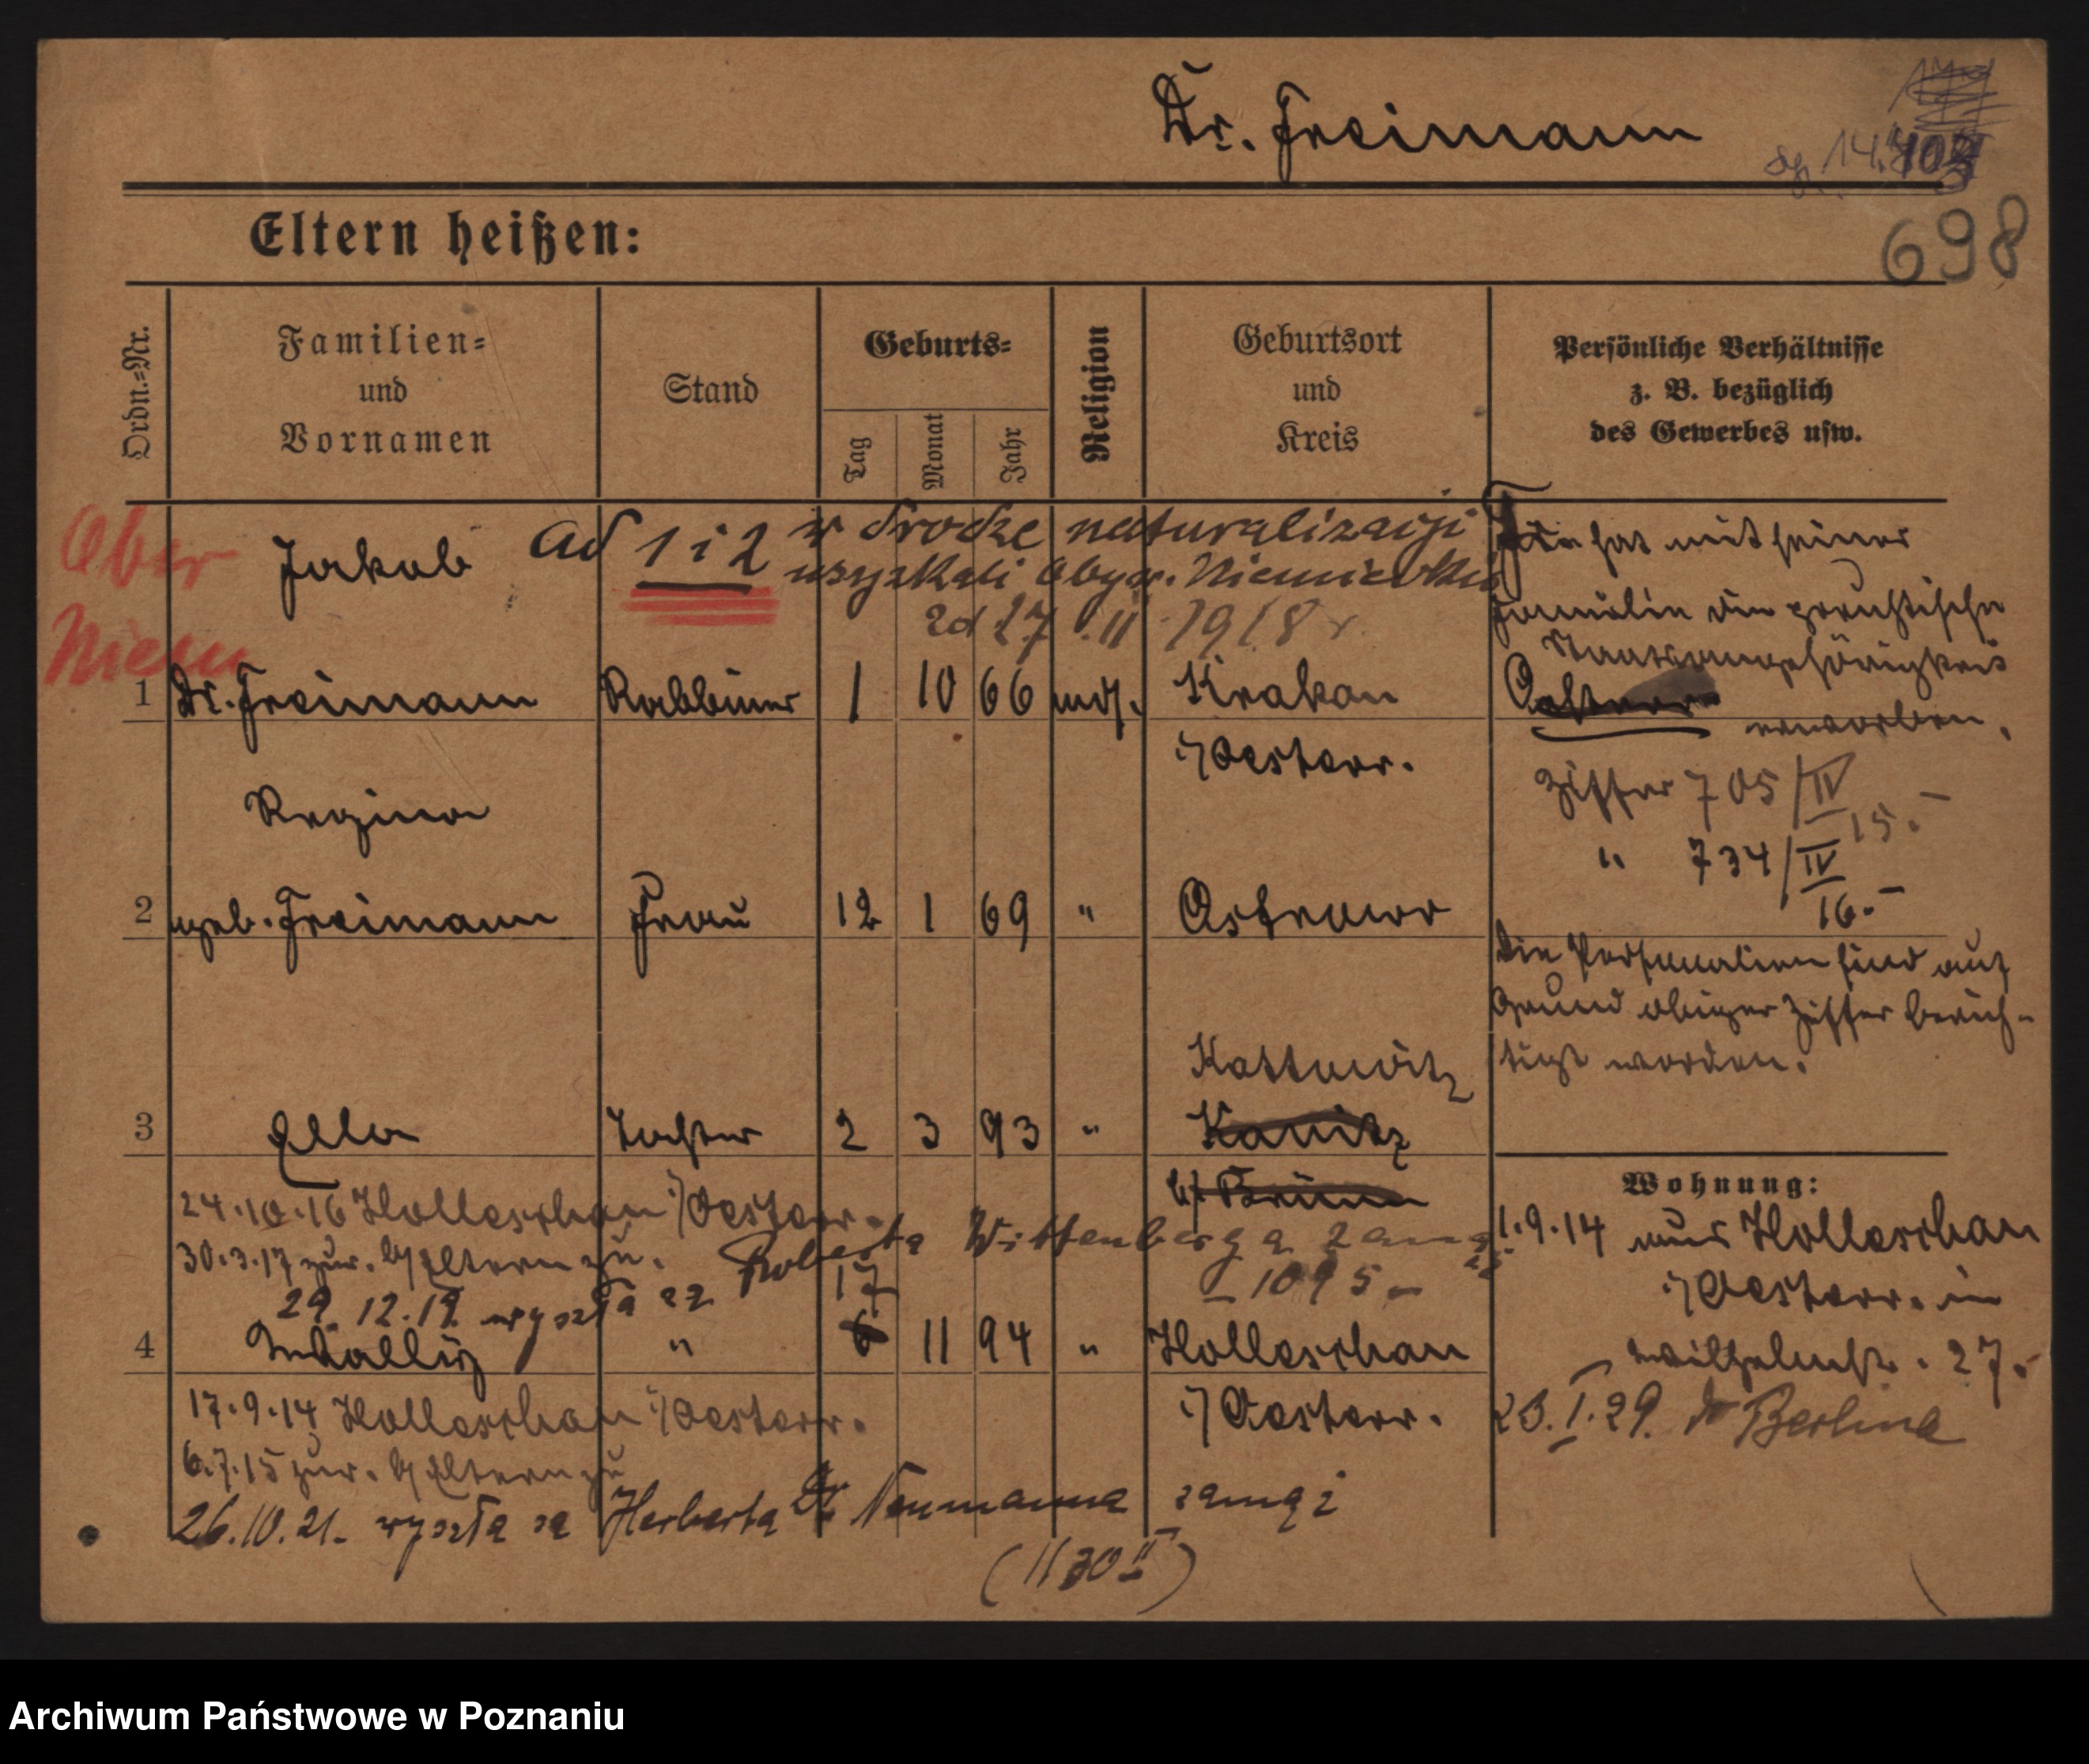 Dr. Freimann
698
Eltern heißen:
Ordn.-Nr.
Familien- und Vornamen
Stand
Geburts-
Tag
Monat
Jahr
Religion
Geburtsort und Kreis
Persönliche Verhältnisse
z. B. bezüglich
des Gewerbes usw.
Ober
Niem
Jakob
ad 1 i 2 w drodze naturalizacji
uzyskali obyw. Niemieckie
zd 17.11.1918 r.
1 Dr. Freimann Rabbiner 1 10 66 mos. Krakau
i/Oesterr.
hat mit seiner
Familie die preußische
Staatsangehörigkeit
erworben.
Ziffer 705/IV 15.
" 734/IV 16.
Regina
2 geb. Freimann Frau 12 1 69 " Ostrowo
Die Personalien sind auf
Grund obiger Ziffer berich-
tigt worden.
Kattowitz
3 Ella Tochter 2 3 93 " Kanitz
b/ Brünn
24.10.16 Holleschau i/Oesterr.
30.3.17 zur. b/Eltern zu.
29.12.19. wyszła za Roberta Wittenberga zamąż
1095
17
4 Wally " 6 11 94 " Holleschau
i/Oesterr.
17.9.14 Holleschau i/Oesterr.
6.7.15 zur. b/Eltern zu
26.10.21. wyszła za Herberta Dr Neumanna zamąż
(1130 II)
Wohnung:
1.9.14 aus Holleschau
i/Oesterr. in
Wilhelmstr. 27.
23.I.29. do Berlina
Archiwum Państwowe w Poznaniu